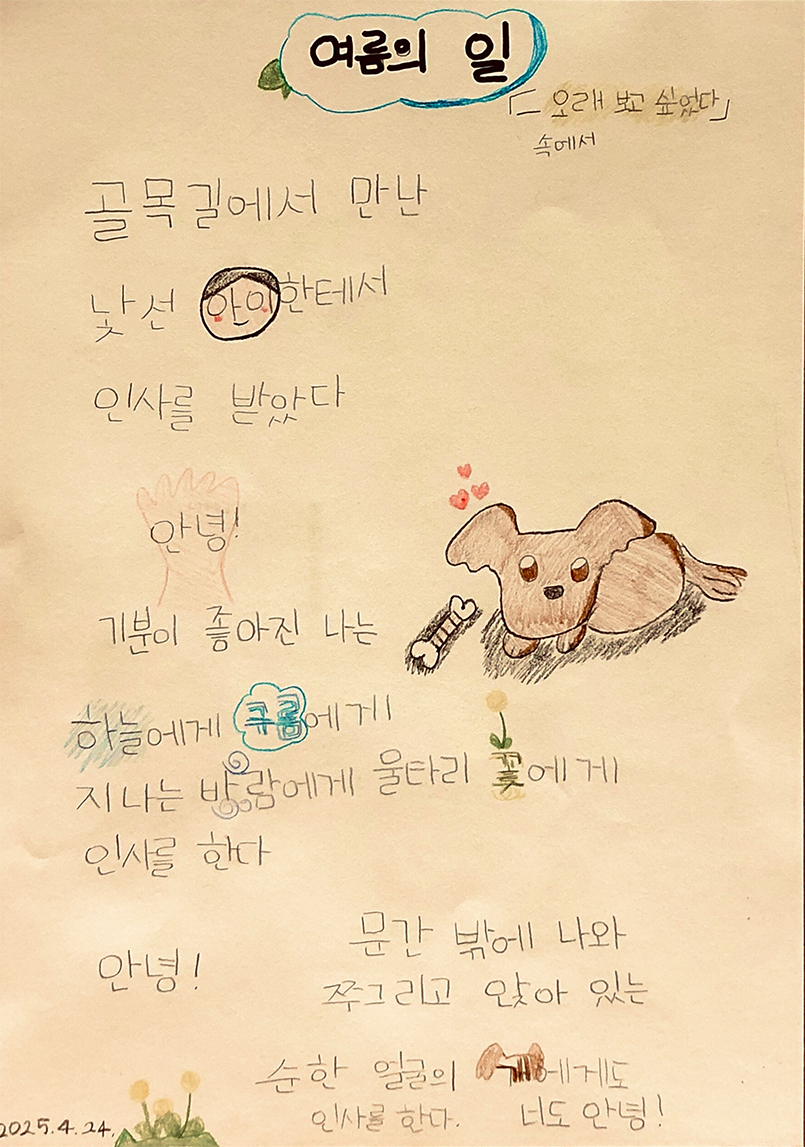 여름의 일
「오래 보고 싶었다」
속에서
골목길에서 만난
낯선 아이한테서
인사를 받았다
안녕!
기분이 좋아진 나는
하늘에게 구름에게
지나는 바람에게 울타리 꽃에게
인사를 한다
안녕!
문간 밖에 나와
쭈그리고 앉아 있는
순한 얼굴의 개에게도
인사를 한다. 너도 안녕!
2025.4.24.